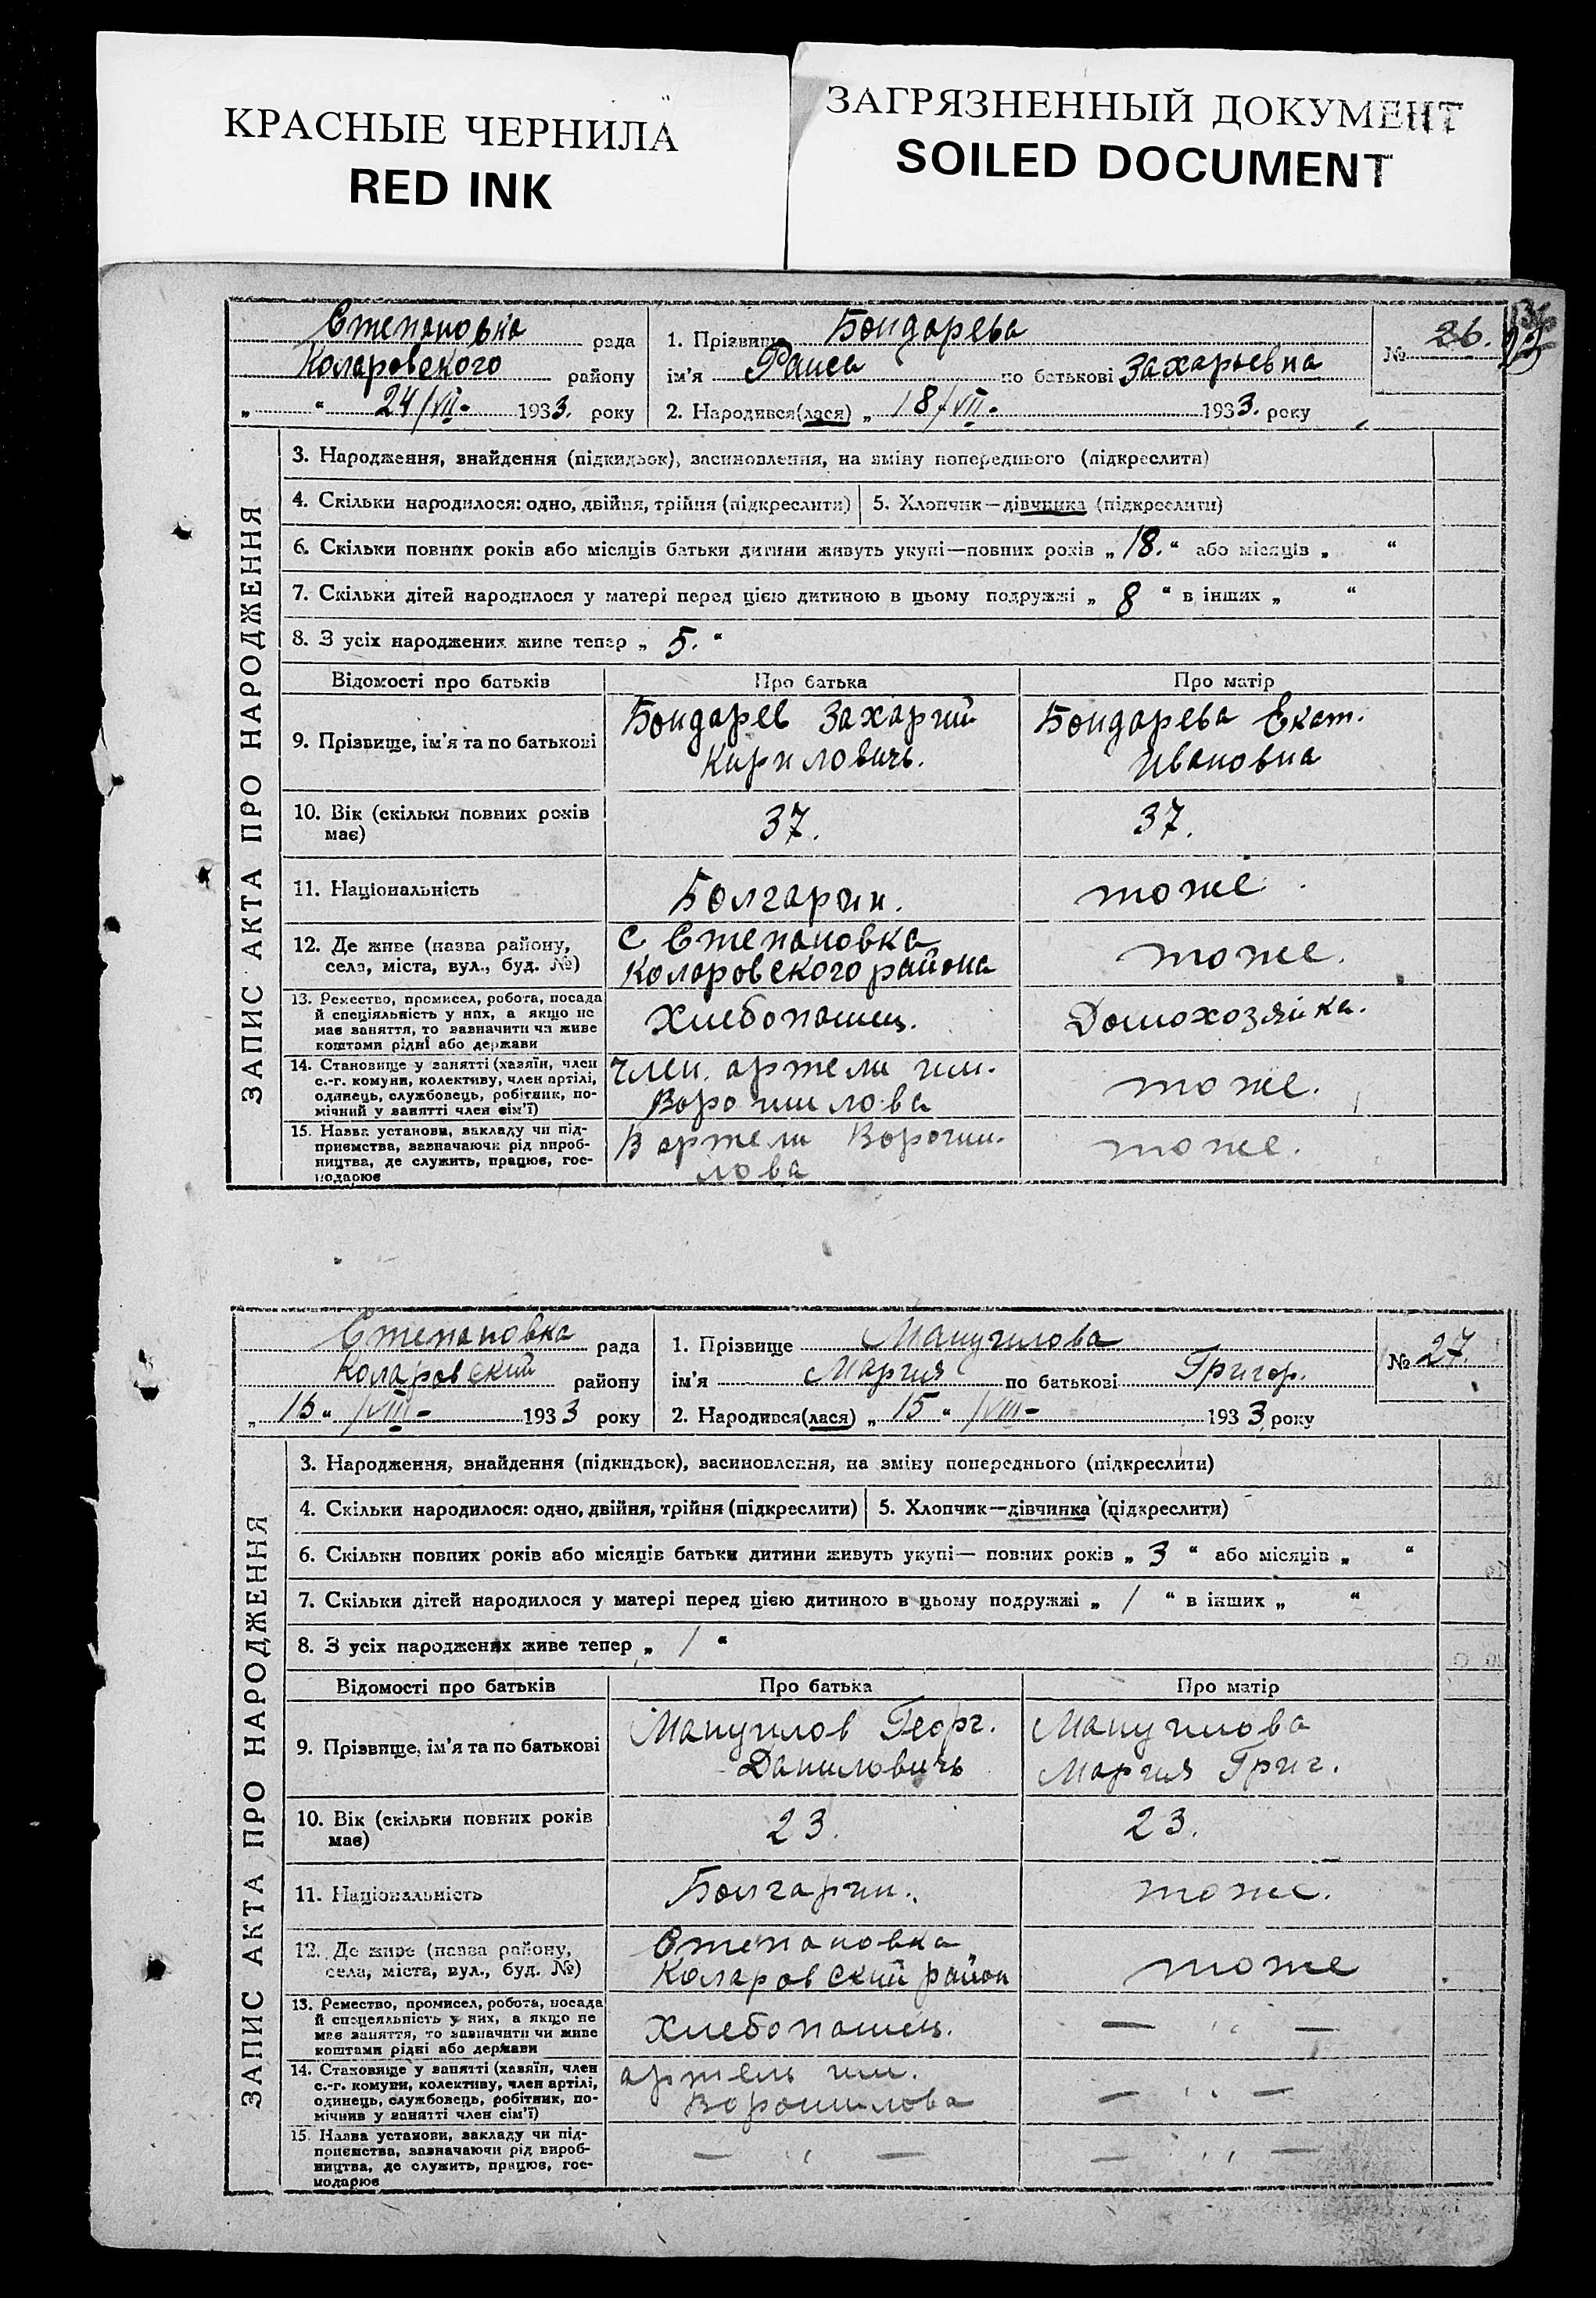 КРАСНЫЕ ЧЕРНИЛА
RED INK
ЗАГРЯЗНЕННЫЙ ДОКУМЕНТ
SOILED DOCUMENT
Степановка рада
Коларовского району
„ “ 24/VII- 1933. року
1. Прізвище Бондарева
ім'я Раиса по батькові Захарьевна
2. Народився(лася) „ 18/VII- 1933. року
№ 26.
ЗАПИС АКТА ПРО НАРОДЖЕННЯ
3. Народження, знайдення (підкидьок), засиновлення, на зміну попереднього (підкреслити)
4. Скільки народилося: одно, двійня, трійня (підкреслити) 5. Хлопчик—дівчинка (підкреслити)
6. Скільки повних років або місяців батьки дитини живуть укупі—повних років „ 18. “ або місяців „ “
7. Скільки дітей народилося у матері перед цією дитиною в цьому подружжі „ 8 “ в інших „ “
8. З усіх народжених живе тепер „ 5. “
Відомості про батьків Про батька Про матір
9. Прізвище, ім'я та по батькові
Бондарев Захарий
Кириловичь.
Бондарева Екат.
Ивановна
10. Вік (скільки повних років
має)
37.
37.
11. Національність
Болгарин.
тоже
12. Де живе (назва району,
села, міста, вул., буд. №)
с Степановка
Коларовского района
тоже.
13. Ремество, промисел, робота, посада
й спеціяльність у них, а якщо не
має заняття, то зазначити чи живе
коштами рідні або держави
Хлебопашец.
Домохозяйка.
14. Становище у занятті (хазяїн, член
с.-г. комуни, колективу, член артілі,
одинець, службовець, робітник, по-
мічний у занятті член сім'ї)
член артели им.
Ворошилова
тоже.
15. Назва установи, закладу чи під-
приємства, зазначаючи рід вироб-
ництва, де служить, працює, гос-
подарює
В артели Ворошилова
тоже.
Степановка рада
Коларовский району
„ 16 “ /VIII- 1933 року
1. Прізвище Манушлова
ім'я Мария по батькові Григор.
2. Народився(лася) „ 15 “ /VIII- 1933 року
№ 27.
ЗАПИС АКТА ПРО НАРОДЖЕННЯ
3. Народження, знайдення (підкидьок), засиновлення, на зміну попереднього (підкреслити)
4. Скільки народилося: одно, двійня, трійня (підкреслити) 5. Хлопчик—дівчинка (підкреслити)
6. Скільки повних років або місяців батьки дитини живуть укупі— повних років „ 3 “ або місяців „ “
7. Скільки дітей народилося у матері перед цією дитиною в цьому подружжі „ 1 “ в інших „ “
8. З усіх народжених живе тепер „ 1 “
Відомості про батьків Про батька Про матір
9. Прізвище, ім'я та по батькові
Георг.
Даниловичь
Мария Григ.
10. Вік (скільки повних років
має)
23.
23.
11. Національність
Болгарин.
тоже.
12. Де живе (назва району,
села, міста, вул., буд. №)
Степановка
Коларовский район
тоже
13. Ремество, промисел, робота, посада
й спецеяльність у них, а якщо не
має заняття, то зазначити чи живе
коштами рідні або держави
Хлебопашец.
— “ —
14. Становище у занятті (хазяїн, член
с.-г. комуни, колективу, член артілі,
одинець, службовець, робітник, по-
мічнив у занятті член сім'ї)
артель им.
Ворошилова
— “ —
15. Назва установи, закладу чи під-
приємства, зазначаючи рід вироб-
ництва, де служить, працює, гос-
подарює
— “ —
— “ —